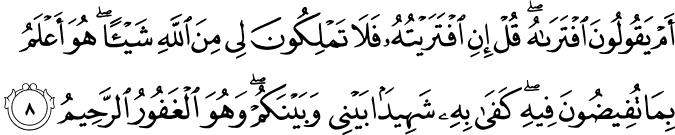 أَمْ يَقُولُونَ ٱفْتَرَىٰهُ ۖ قُلْ إِنِ ٱفْتَرَيْتُهُۥ فَلَا تَمْلِكُونَ لِى مِنَ ٱللَّهِ شَيْـًٔا ۖ هُوَ أَعْلَمُ
بِمَا تُفِيضُونَ فِيهِ ۖ كَفَىٰ بِهِۦ شَهِيدًۢا بَيْنِى وَبَيْنَكُمْ ۖ وَهُوَ ٱلْغَفُورُ ٱلرَّحِيمُ ٨